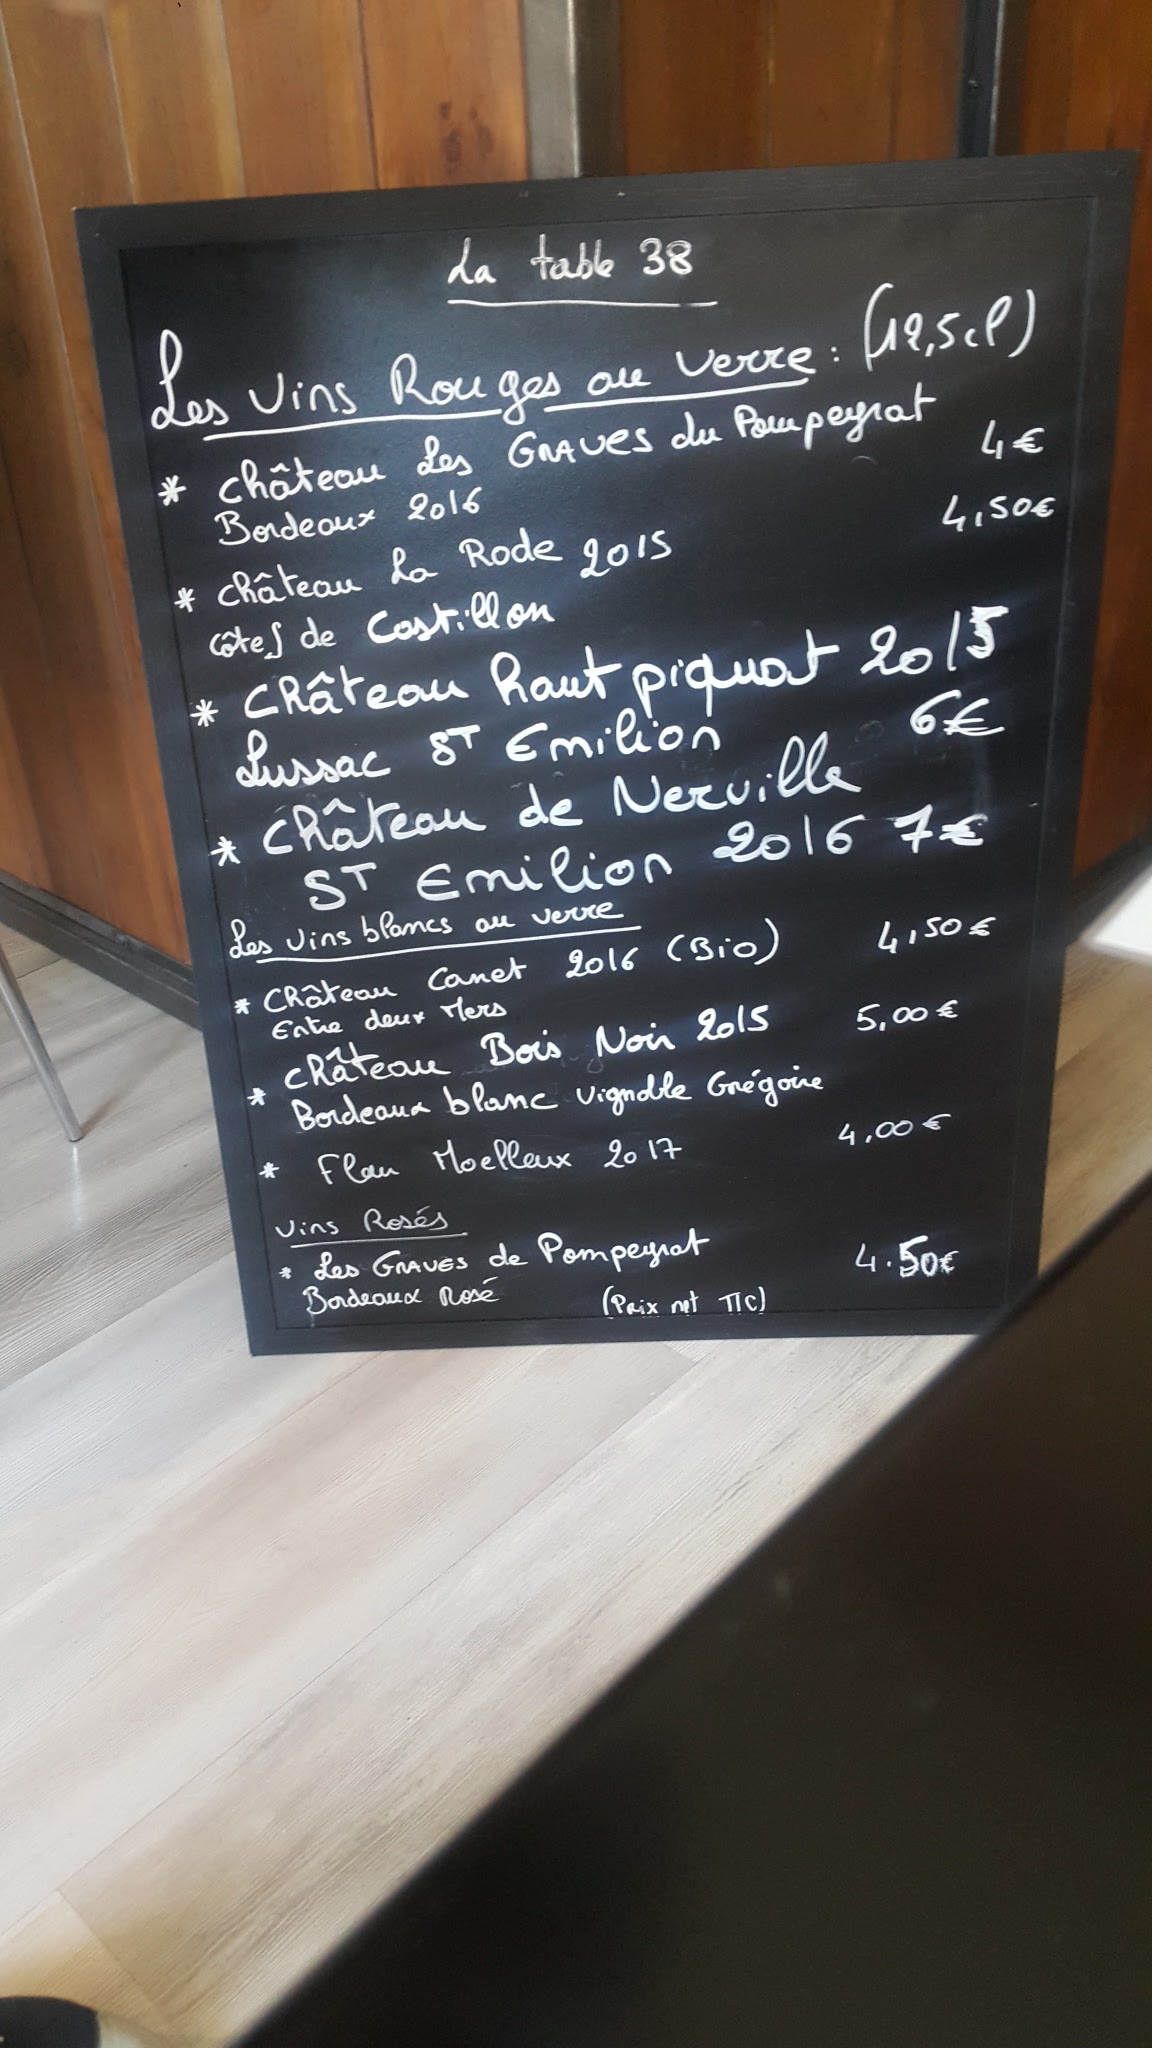 La table 38
Les Vins Rouges au verre : (12,5cl)
* Château Les GRAVES du Pompeyrat 4€
Bordeaux 2016
* Château La Rode 2015 4,50€
Côtes de Castillon
* Château haut piquat 2015
Lussac ST Emilion 6€
* Château de Nerville
ST Emilion 2016 7€
Les Vins blancs au verre
* Château Canet 2016 (Bio) 4,50€
Entre deux Mers
* Château Bois Noir 2015 5,00€
Bordeaux blanc Vignoble Grégoire
* Flau Moelleux 2017 4,00€
Vins Rosés
* Les GRAVES de Pompeyrat 4.50€
Bordeaux Rosé (Prix net TTC)